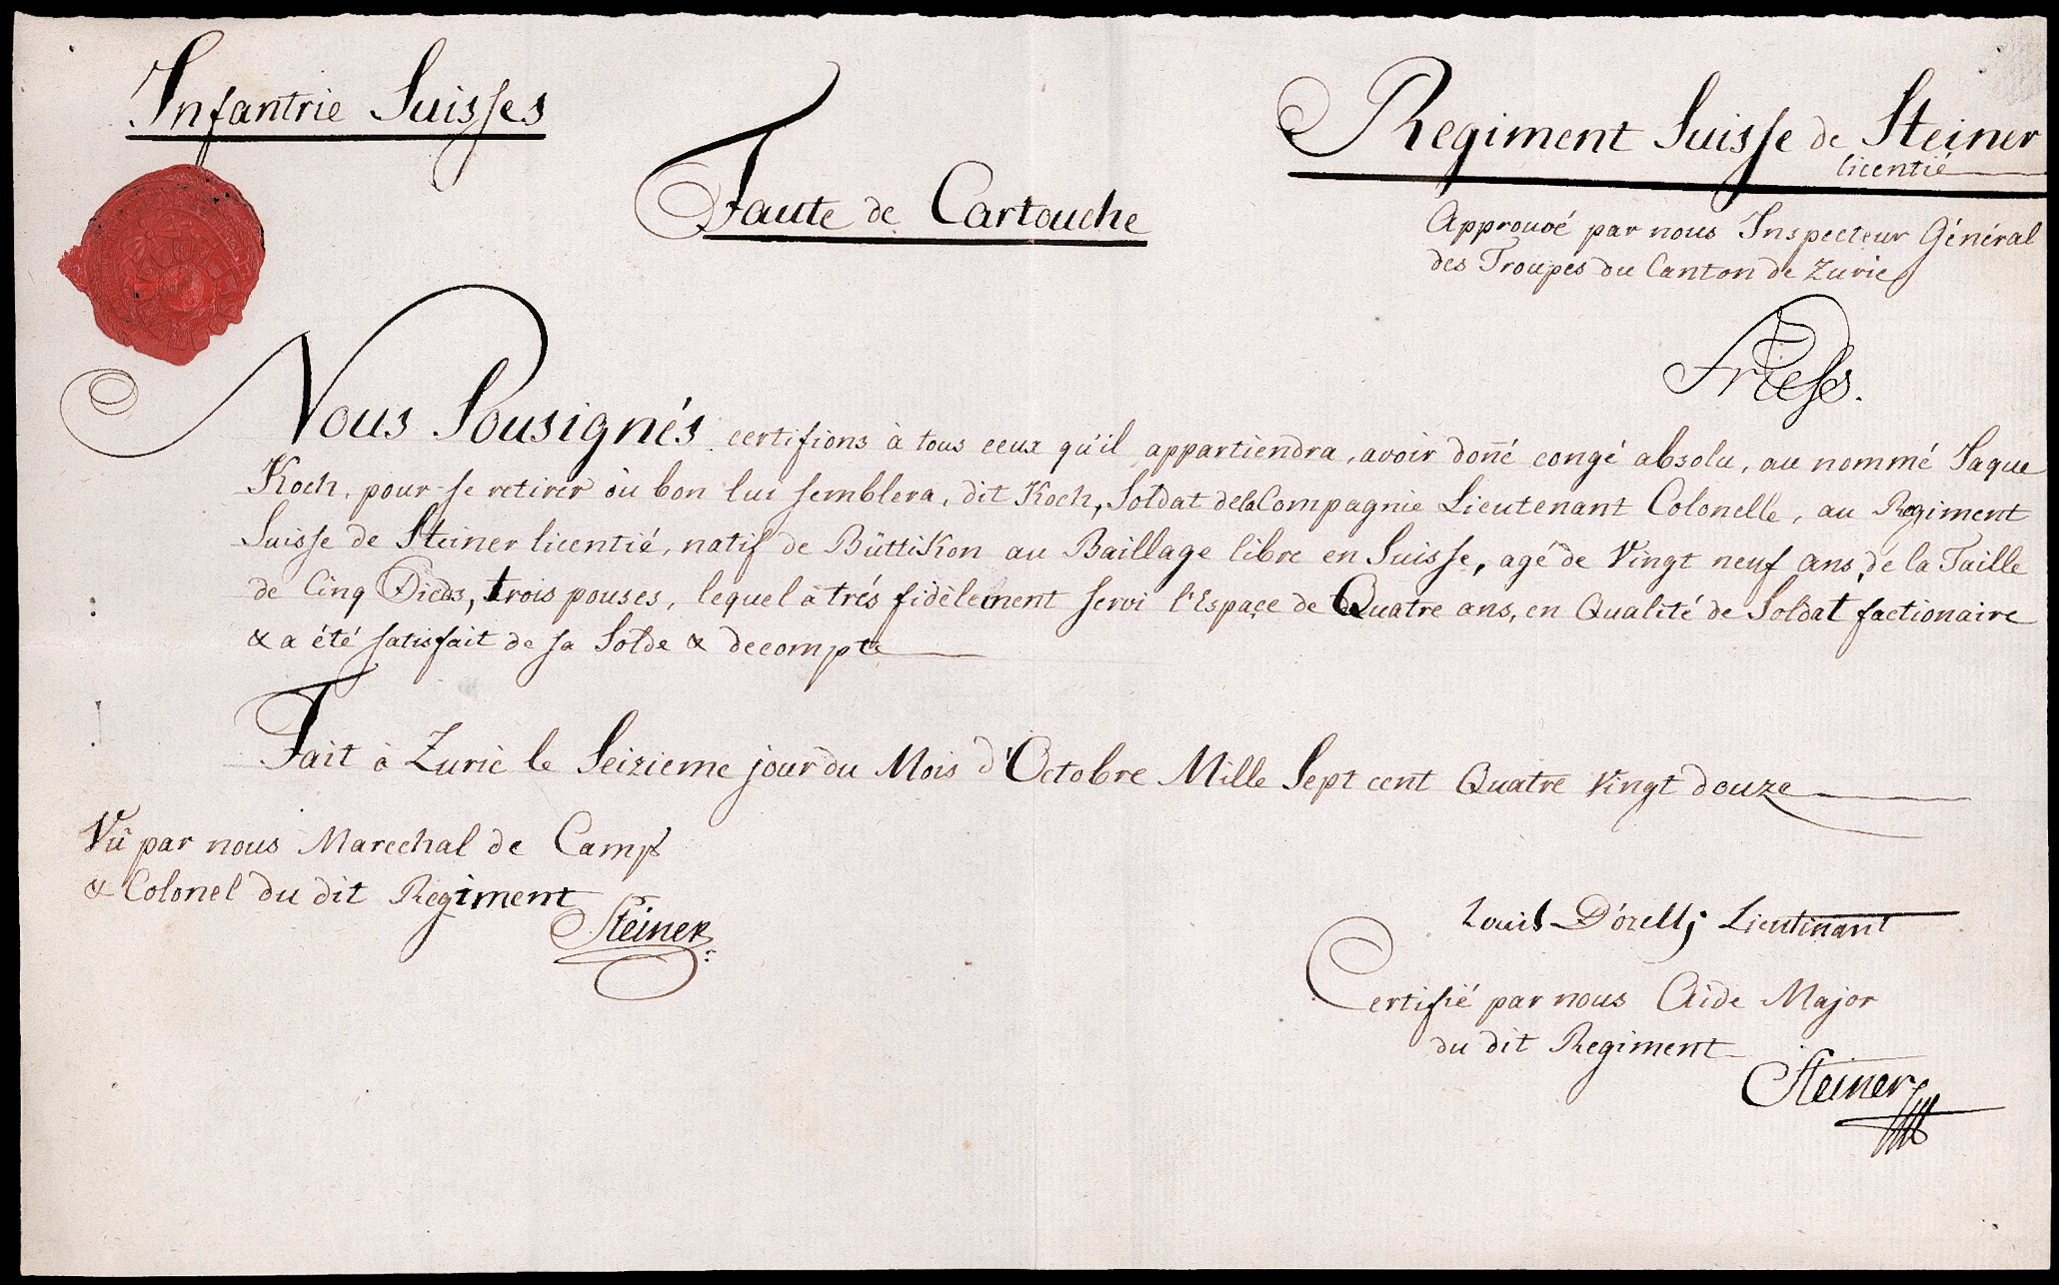 Infantrie Suisses
Regiment Suisse de Steiner
licentié
Faute de Cartouche
Approuvé par nous Inspecteur Général
des Troupes du Canton de Zuric
Friess.
Nous Sousignés certifions à tous ceux qu'il appartiendra, avoir doñé congé absolu, au nommé Jaque
Koch, pour se retirer où bon lui semblera, dit Koch, Soldat de la Compagnie Lieutenant Colonelle, au Regiment
Suisse de Steiner licentié, natif de Büttikon au Baillage libre en Suisse, agé de Vingt neuf ans, de la Taille
de Cinq Pieds, trois pouses, lequel à trés fidèlement servi l'Espaçe de Quatre ans, en Qualité de Soldat factionaire
& a été satisfait de sa Solde & decompte
Fait à Zuric le Seizieme jour du Mois d'Octobre Mille Sept cent Quatre Vingt douze
Vû par nous Marechal de Camp
& Colonel du dit Regiment
Steiner
Louis D'orellj Lieutinant
Certifié par nous Aide Major
du dit Regiment
Steiner